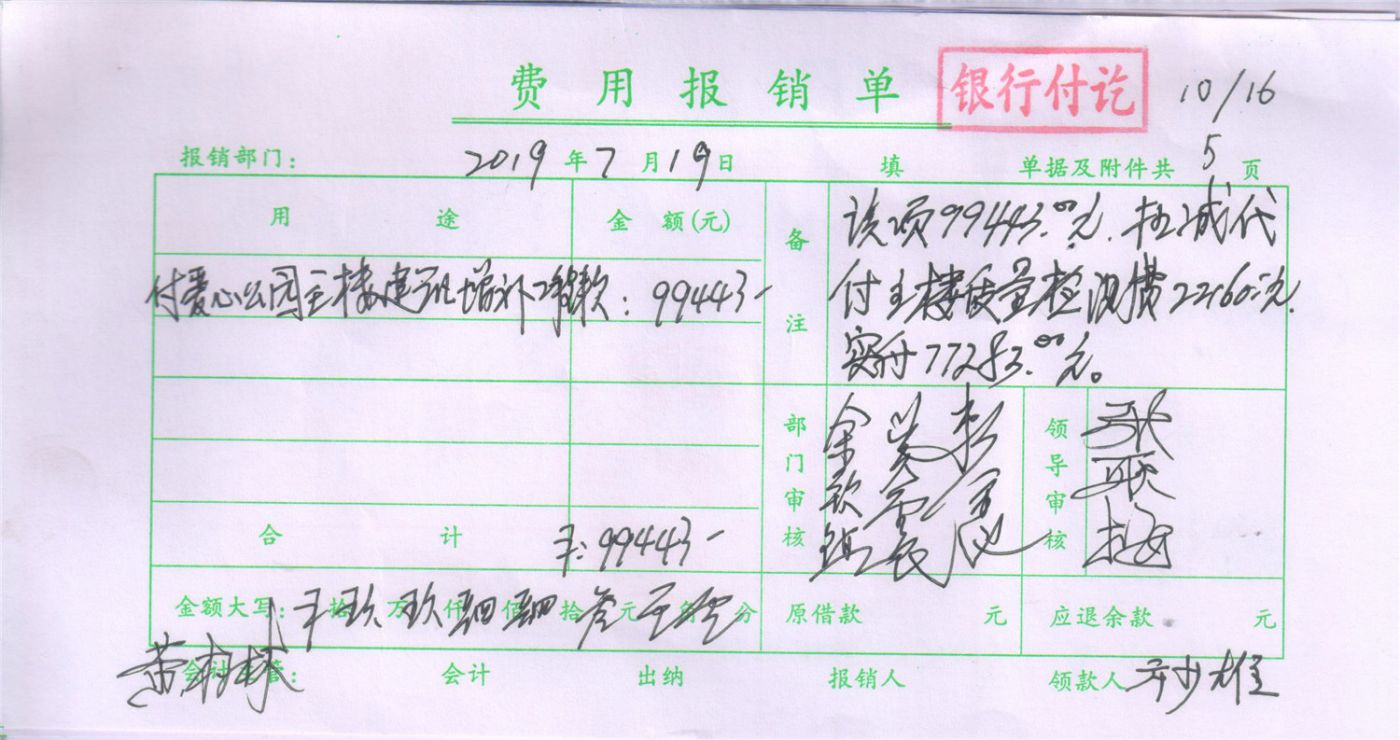 费用报销单 银行付讫 10/16
报销部门: 2019年7月19日 填 单据及附件共5页
用途 金额(元) 备注
该项99443.00元.扣减代
付主楼质量检测费22160元.
实付77283.00元。
付爱心公园主楼建筑增补工程款: 99443-
部门审核 领导审核 张联梅
合计 ¥:99443-
金额大写: 拾玖万玖仟肆佰肆拾叁元零角零分 原借款 元 应退余款 元
会计主管: 会计 出纳 报销人 领款人